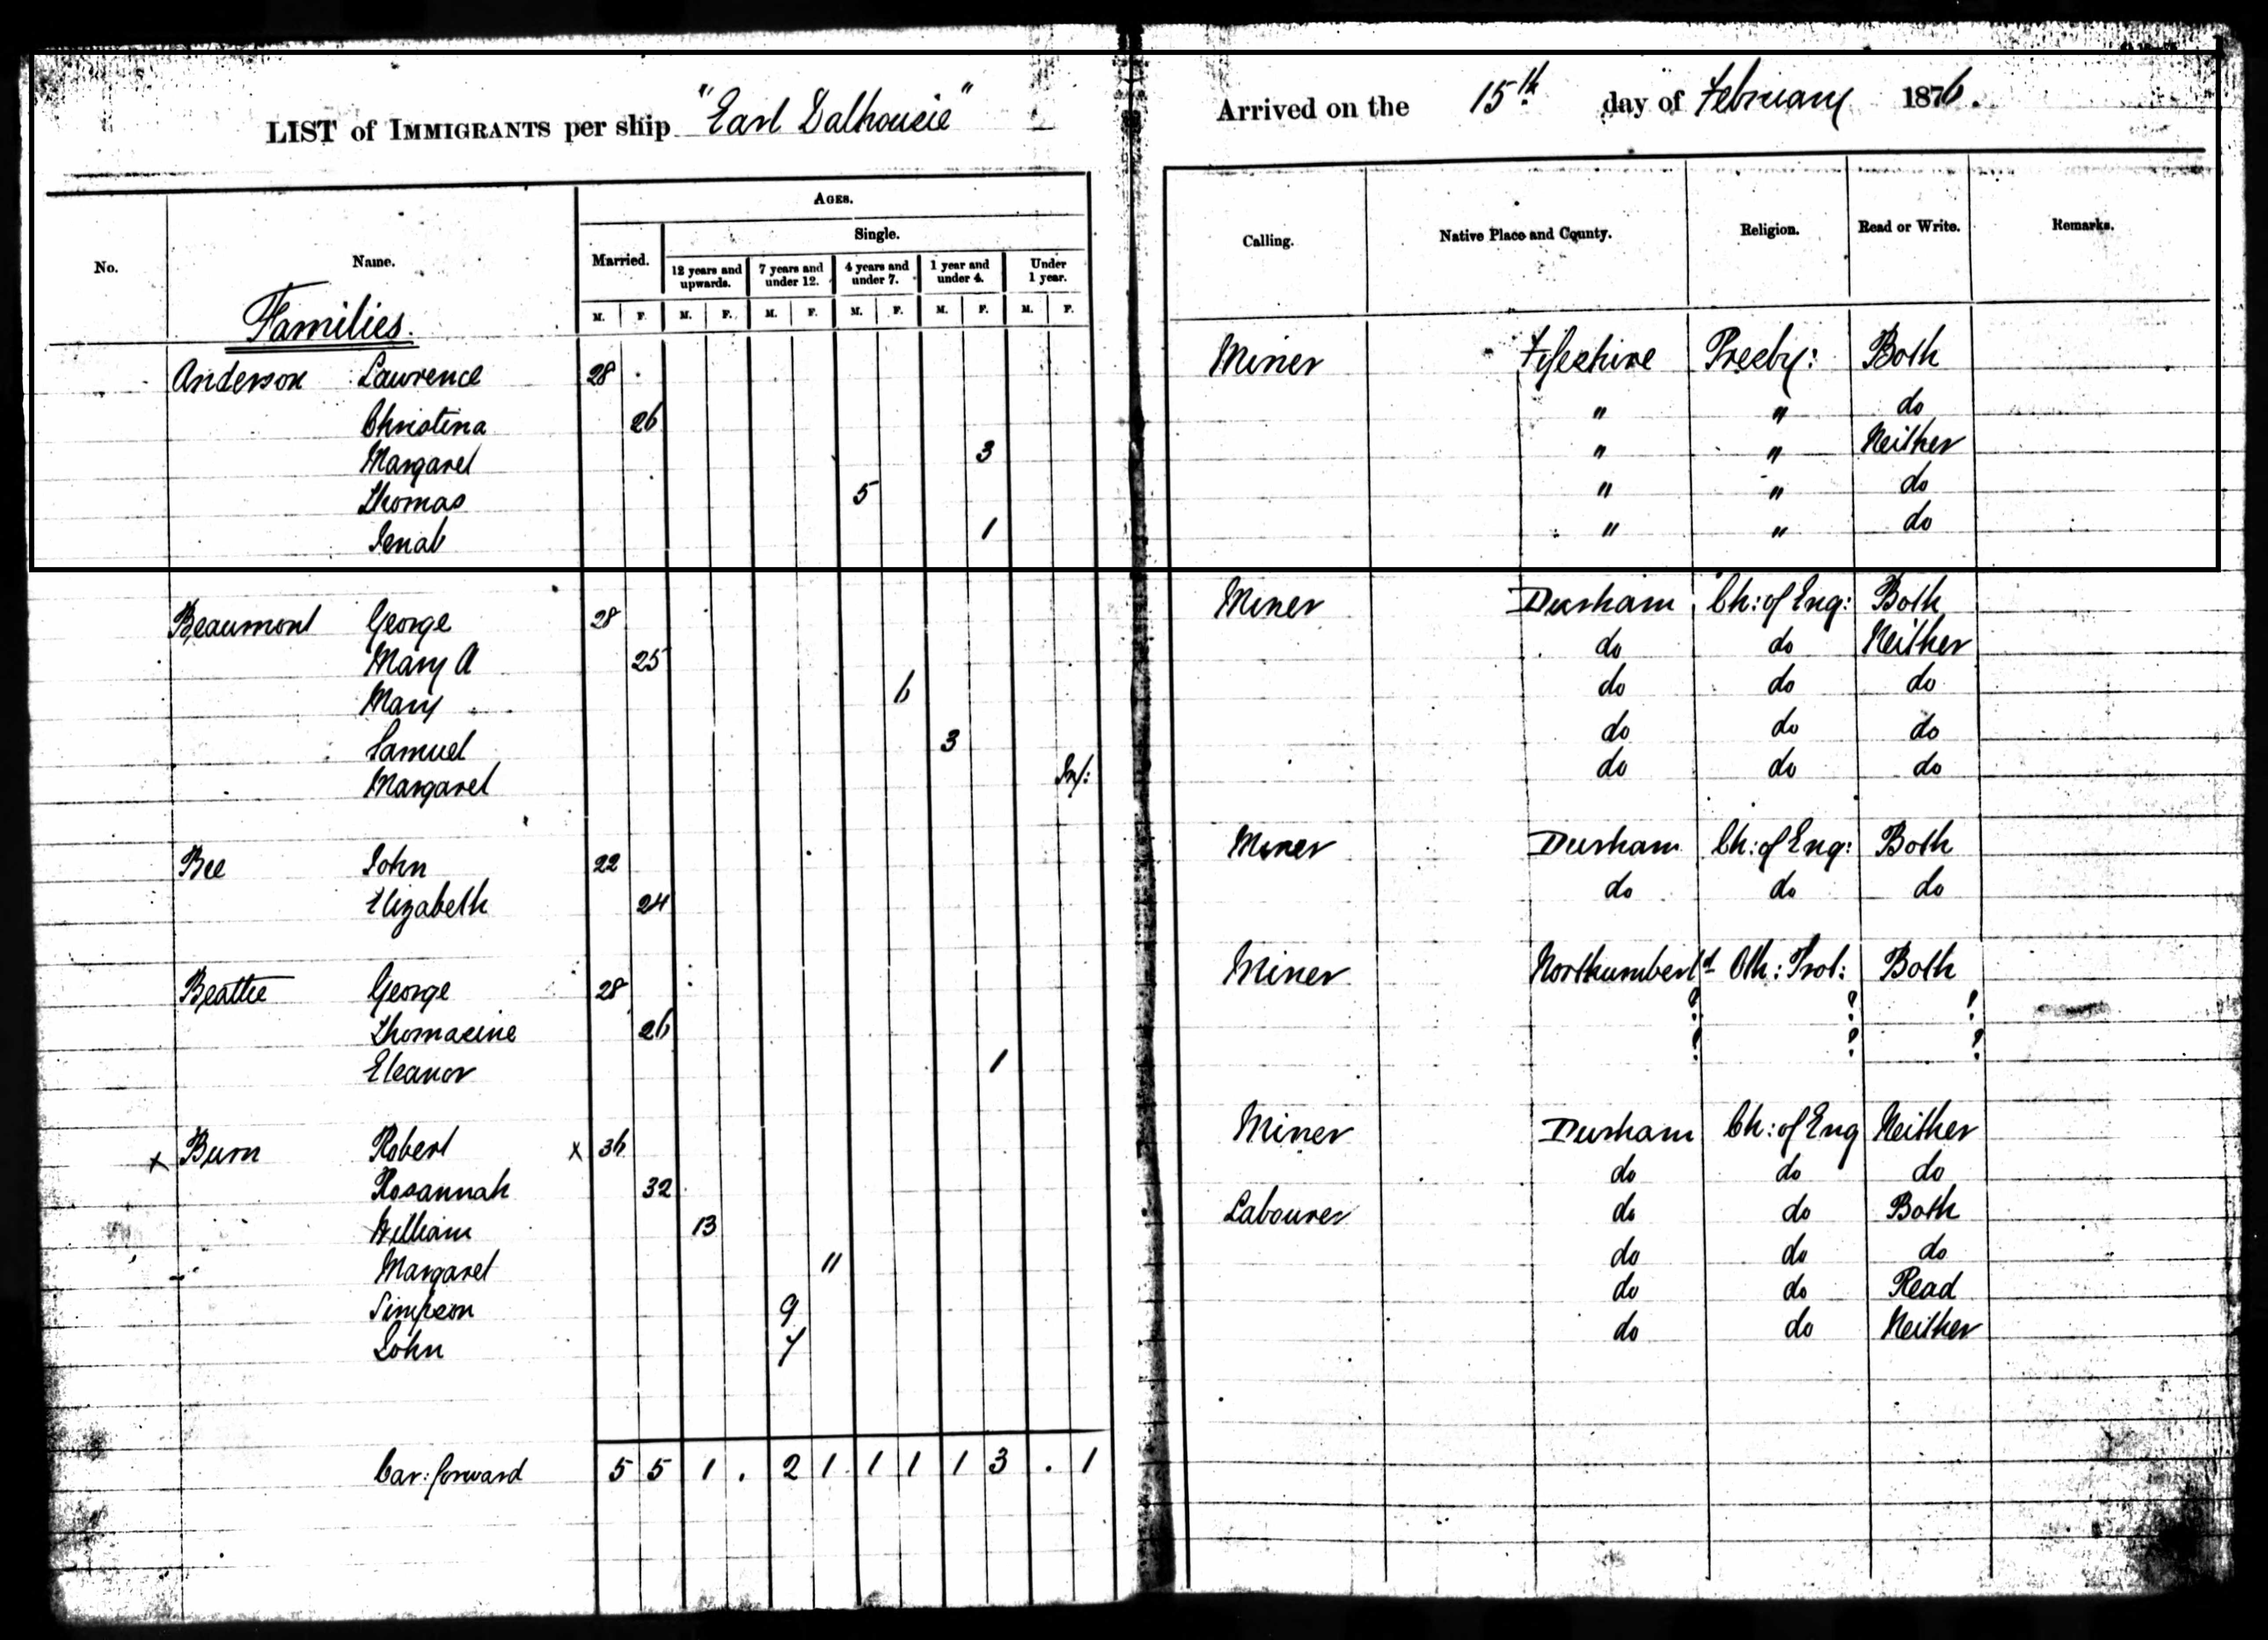 LIST of IMMIGRANTS per ship "Earl Dalhousie" Arrived on the 15th day of February 1876.
No. Name. AGES. Calling. Native Place and County. Religion. Read or Write. Remarks.
Married. Single.
12 years and upwards. 7 years and under 12. 4 years and under 7. 1 year and under 4. Under 1 year.
M. F. M. F. M. F. M. F. M. F. M. F.
Families.
Anderson Lawrence 28 Miner Fifeshire Presby: Both
Christina 26 " " do
Margaret 3 " " Neither
Thomas 5 " " do
1 " " do
Beaumont George 28 Miner Durham Ch: of Eng: Both
Mary A 25 do do Neither
Mary 6 do do do
Samuel 3 do do do
Margaret Inf: do do do
Bee John 22 Miner Durham Ch: of Eng: Both
Elizabeth 24 do do do
Beattie George 28 Miner Northumberld Oth: Prot: Both
Thomasine 26 ? ? ?
Eleanor 1 ? ? ?
x Burn Robert x 36 Miner Durham Ch: of Eng Neither
Rosannah 32 do do do
William 13 Labourer do do Both
Margaret 11 do do do
Simpson 9 do do Read
John 7 do do Neither
Car: forward 5 5 1 . 2 1 1 1 1 3 . 1